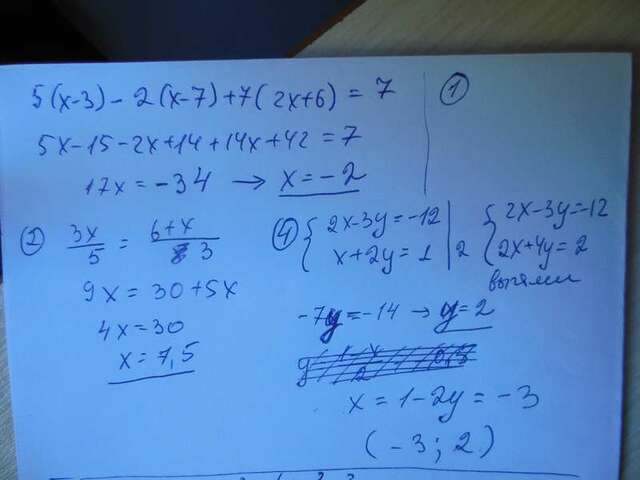 5(x-3)-2(x-7)+7(2x+6)=7
①
5x-15-2x+14+14x+42=7
17x=-34 → x=-2
② 3x/5 = 6+x/3
9x=30+5x
4x=30
x=7,5
④ { 2x-3y=-12
x+2y=1 | 2
{ 2x-3y=-12
2x+4y=2
-7y=-14 → y=2
x=1-2y=-3
(-3; 2)